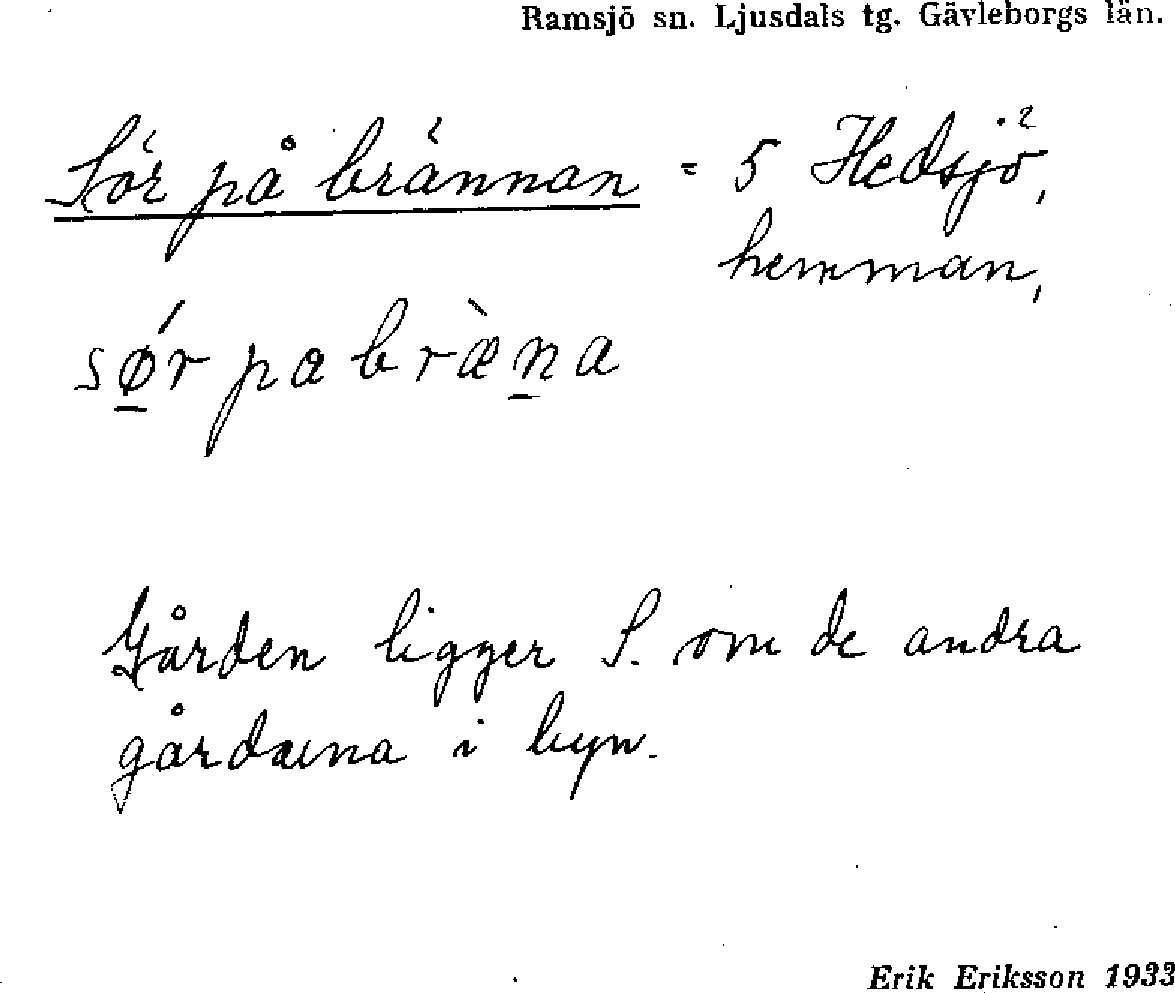 Ramsjö sn. Ljusdals tg. Gävleborgs län.
Sör på brännan = 5 Hedsjö²,
hemman,
sǿr pa bræ̀n̲a
Gården ligger S. om de andra
gårdarna i byn.
Erik Eriksson 1933